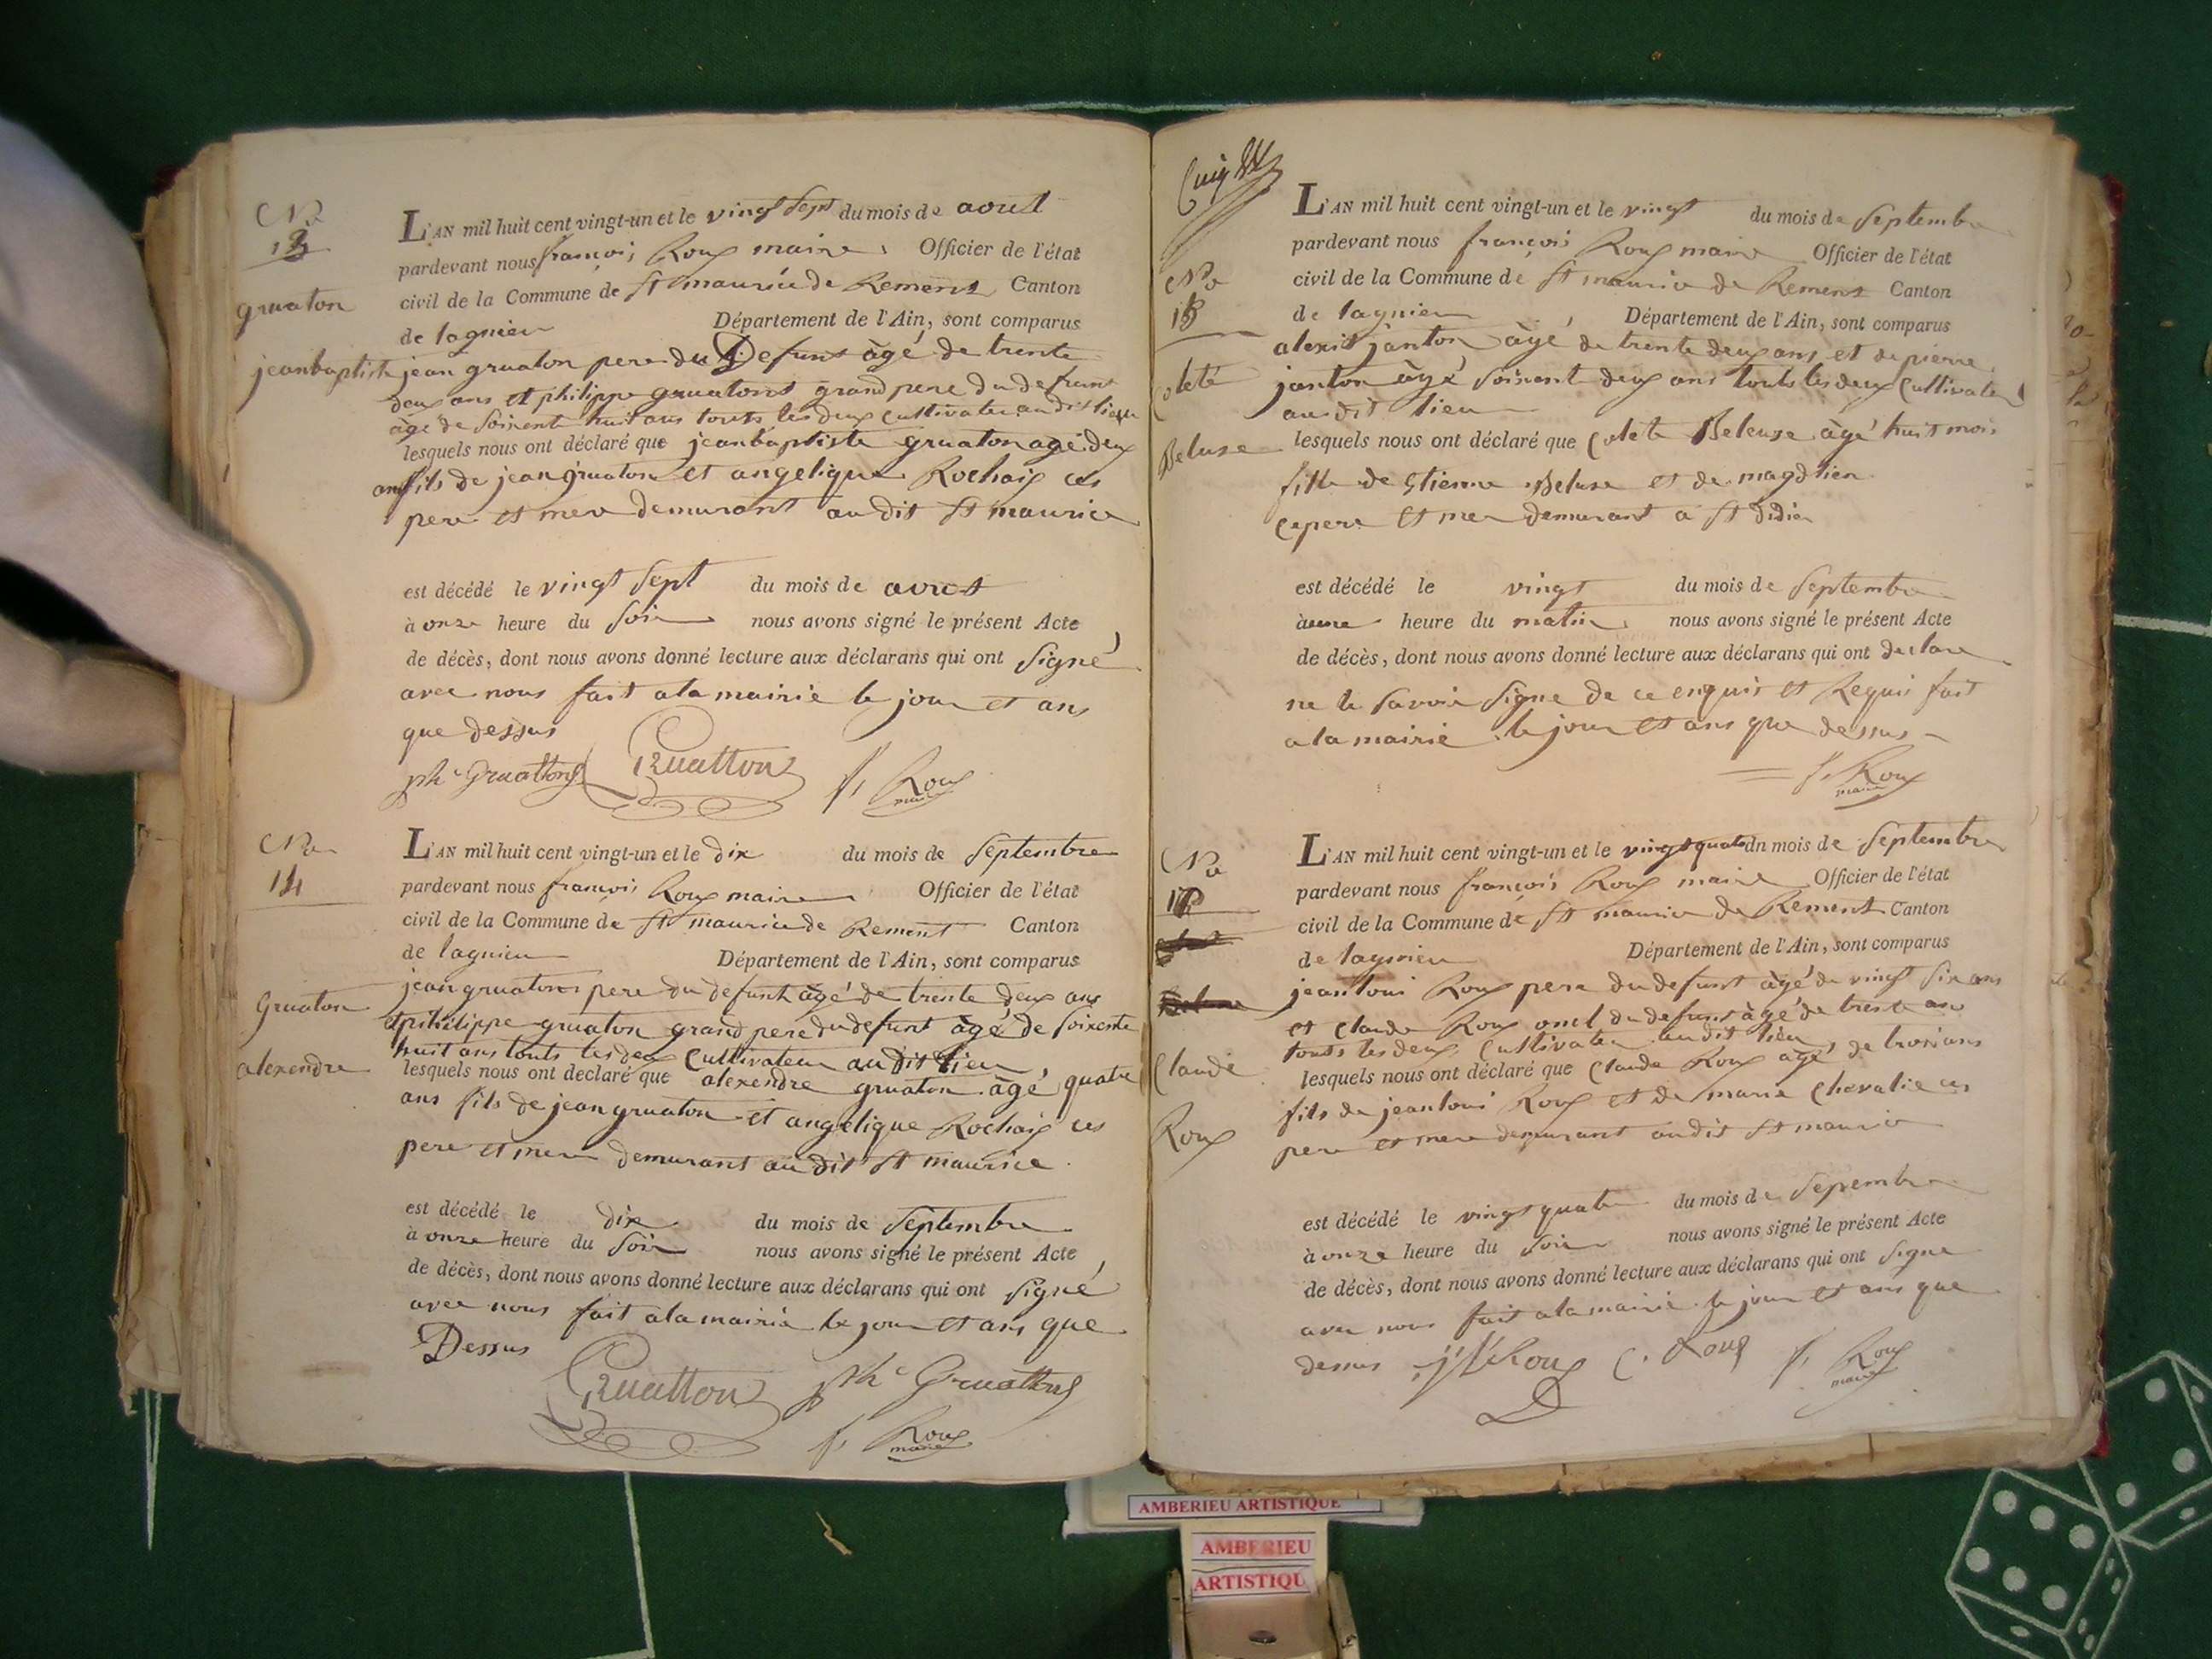 No
13
gruaton
jeanbaptiste
L'AN mil huit cent vingt-un et le vingt sept du mois de aout
pardevant nous françois Roux maire Officier de l'état
civil de la Commune de St maurice de Remens Canton
de lagnieu Département de l'Ain, sont comparus
jean gruaton pere du Defunt âgé de trente
deux ans et philippe gruatont grand pere du defunt
âgé de soixente huit ans touts les deux cultivateu au dit lieu
lesquels nous ont déclaré que jeanbaptiste gruaton agé deux
ans fils de jean gruaton et angelique Rochaix ces
pere et mere demurant au dit St maurice
est décédé le vingt sept du mois de aout
à onze heure du soir nous avons signé le présent Acte
de décès, dont nous avons donné lecture aux déclarans qui ont signé
avec nous fait a la mairie le jour et ans
que dessus
phe Gruattont Gruatton f. Roux
maire
No
14
Gruaton
alexendre
L'AN mil huit cent vingt-un et le dix du mois de septembre
pardevant nous françois Roux maire Officier de l'état
civil de la Commune de St maurice de Remens Canton
de lagnieu Département de l'Ain, sont comparus
jean gruaton pere du defunt âgé de trente deux ans
et philippe gruaton grand pere du defunt âgé de soixente
huit ans touts les deux cultivateur au dit lieu
lesquels nous ont déclaré que alexendre gruaton âgé quatre
ans fils de jean gruaton et angelique Rochaix ces
pere et mere demurant au dit St maurice
est décédé le dix du mois de septembre
à onze heure du soir nous avons signé le présent Acte
de décès, dont nous avons donné lecture aux déclarans qui ont signé
avec nous fait a la mairie le jour et ans que
Dessus
Gruatton phe Gruattont
f. Roux
maire
No
15
Coleté
Beluse
L'AN mil huit cent vingt-un et le vingt du mois de septembre
pardevant nous françois Roux maire Officier de l'état
civil de la Commune de St maurice de Remens Canton
de lagnieu Département de l'Ain, sont comparus
alexit janton âgé de trente deux ans et de pierre
janton âgé soixent deux ans touts les deux cultivateu
au dit lieu
lesquels nous ont déclaré que Coleté Beleuse âgé huit mois
fille de Etienne Beluse et de magdlien
ce pere et mer demurant a St didier
est décédé le vingt du mois de septembre
à une heure du matin nous avons signé le présent Acte
de décès, dont nous avons donné lecture aux déclarans qui ont declare
ne le savoir signe de ce enquit et Requis fait
a la mairie le jour et ans que dessus
f. Roux
maire
No
Claude
Roux
L'AN mil huit cent vingt-un et le vingt quatr du mois de septembre
pardevant nous françois Roux maire Officier de l'état
civil de la Commune de St maurice de Remens Canton
de lagnieu Département de l'Ain, sont comparus
jean loui Roux pere du defunt âgé de vingt six ans
et Claude Roux oncl du defunt âgé de trente ans
touts les deux cultivateu au dit lieu
lesquels nous ont déclaré que Claude Roux âgé de trois ans
fils de jean loui Roux et de marie Chevalie ces
pere et mere demurant au dit St maurice
est décédé le vingt quatr du mois de sepembre
à onze heure du soir nous avons signé le présent Acte
de décès, dont nous avons donné lecture aux déclarans qui ont signe
avec nous fait a la mairie le jour et ans que
dessus j l Roux C. Roux f. Roux
maire
AMBERIEU ARTISTIQUE
AMBERIEU
ARTISTIQU